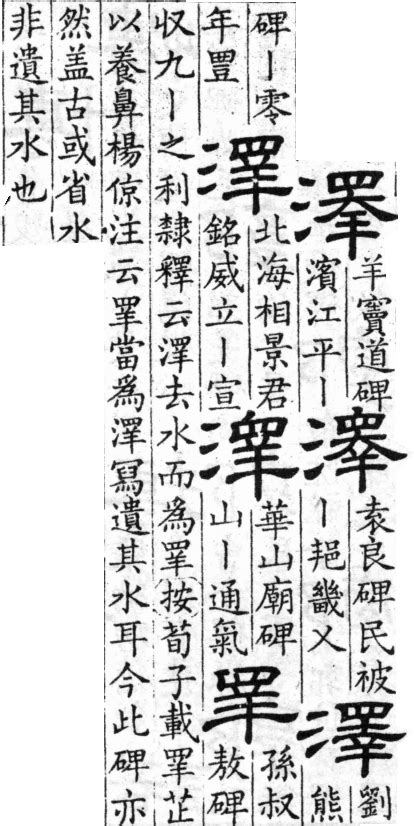 澤
羊竇道碑
濱江平丨
澤
袁良碑民被
丨邫畿乂
澤
劉
熊
碑丨零
年豊
澤
北海相景君
銘威立丨宣
澤
華山廟碑
山丨通氣
睪
孫叔
敖碑
収九丨之利隸釋云澤去水而為睪按荀子載睪芷
以養鼻楊倞注云睪當為澤冩遺其水耳今此碑亦
然盖古或省水
非遺其水也